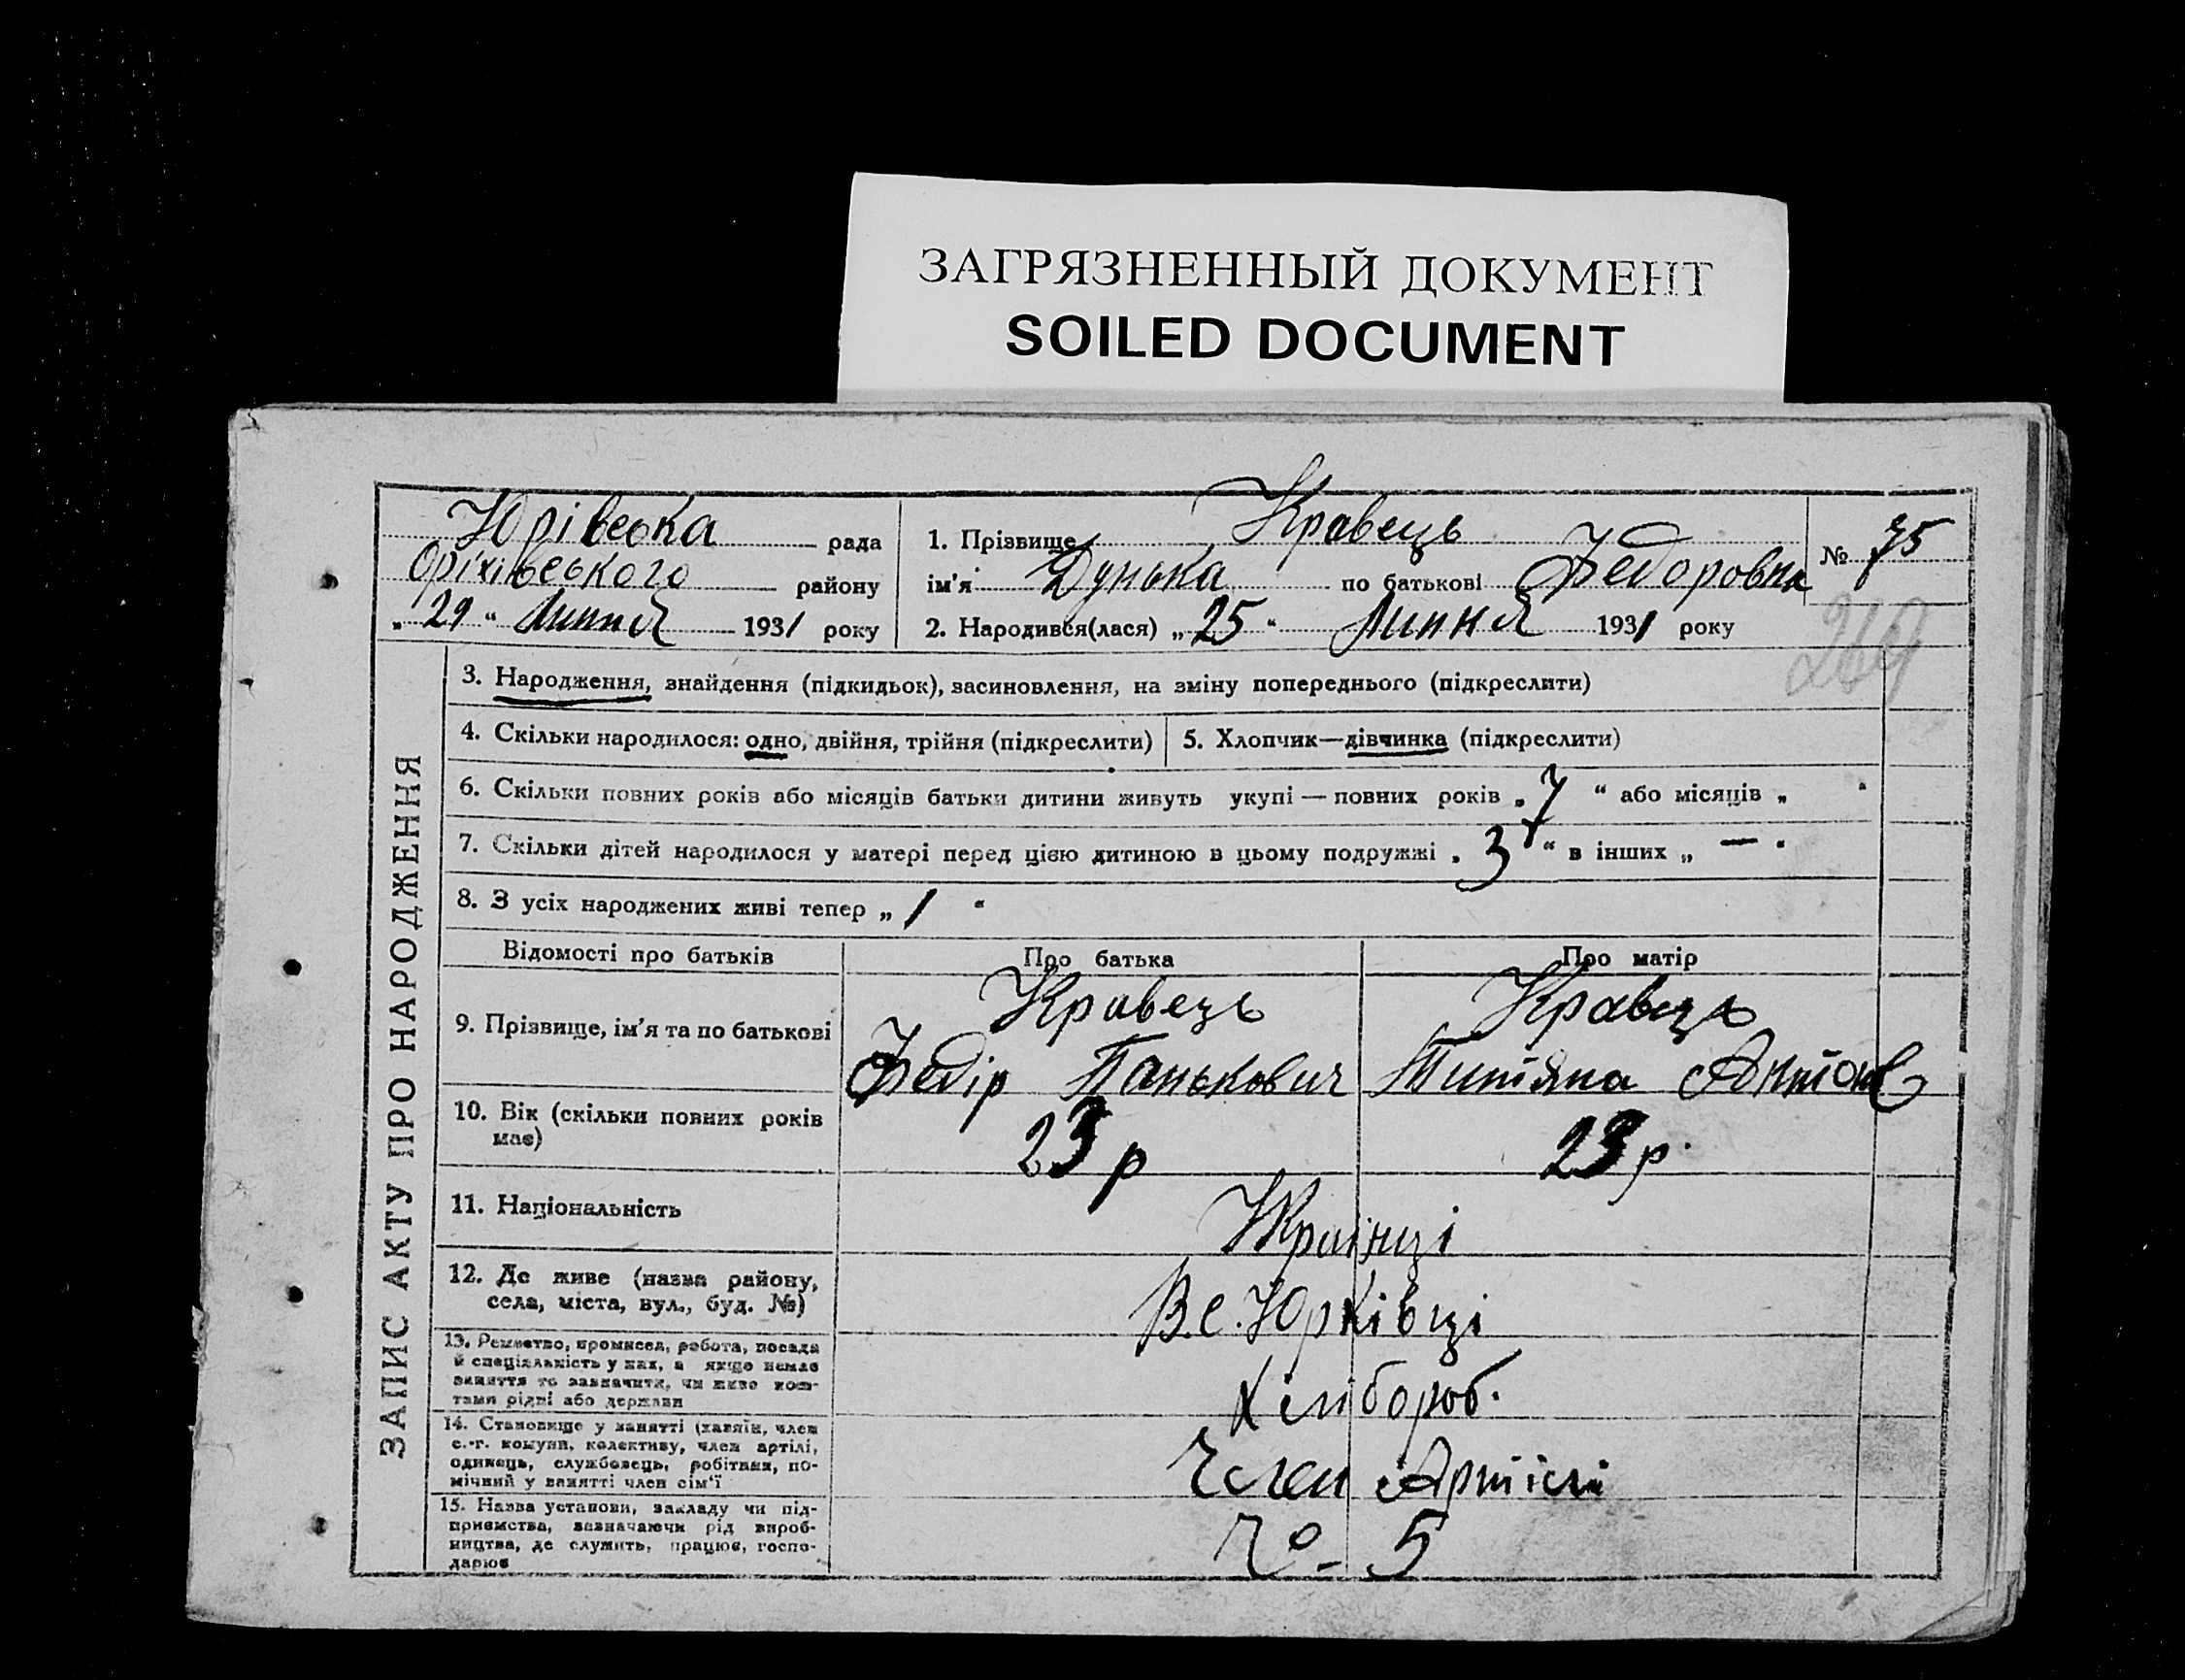 ЗАГРЯЗНЕННЫЙ ДОКУМЕНТ
SOILED DOCUMENT
Юрівська рада
Оріхівського району
„ 29 “ Липня 1931 року
1. Прізвище Кравець
ім'я Дунька по батькові Федоровна
2. Народився(лася) „ 25 “ Липня 1931 року
№ 75
269
ЗАПИС АКТУ ПРО НАРОДЖЕННЯ
3. Народження, знайдення (підкидьок), засиновлення, на зміну попереднього (підкреслити)
4. Скільки народилося: одно, двійня, трійня (підкреслити)
5. Хлопчик—дівчинка (підкреслити)
6. Скільки повних років або місяців батьки дитини живуть укупі — повних років „ 7 “ або місяців „ “
7. Скільки дітей народилося у матері перед цією дитиною в цьому подружжі „ 3 “ в інших „ — “
8. З усіх народжених живі тепер „ 1 “
Відомості про батьків Про батька Про матір
9. Прізвище, ім'я та по батькові
Кравець
Федір Панькович
Кравець
Титяна Антон
10. Вік (скільки повних років
має)
23 р
23 р.
11. Національність
Українці
12. Де живе (назва району,
села, міста, вул., буд. №)
В с. Юрківці
13. Ремество, промисел, робота, посада
й спеціяльність у них, а якщо немає
заняття то зазначити, чи живе кош-
тами рідні або держави
Хлібороб.
14. Становище у занятті (хазяїн, член
с.-г. комуни, колективу, член артілі,
одинець, службовець, робітник, по-
мічний у занятті член сім'ї
Член Артілі
15. Назва установи, закладу чи під-
приємства, зазначаючи рід вироб-
ництва, де служить, працює, госпо-
дарює
Ч<sup>о</sup>- 5